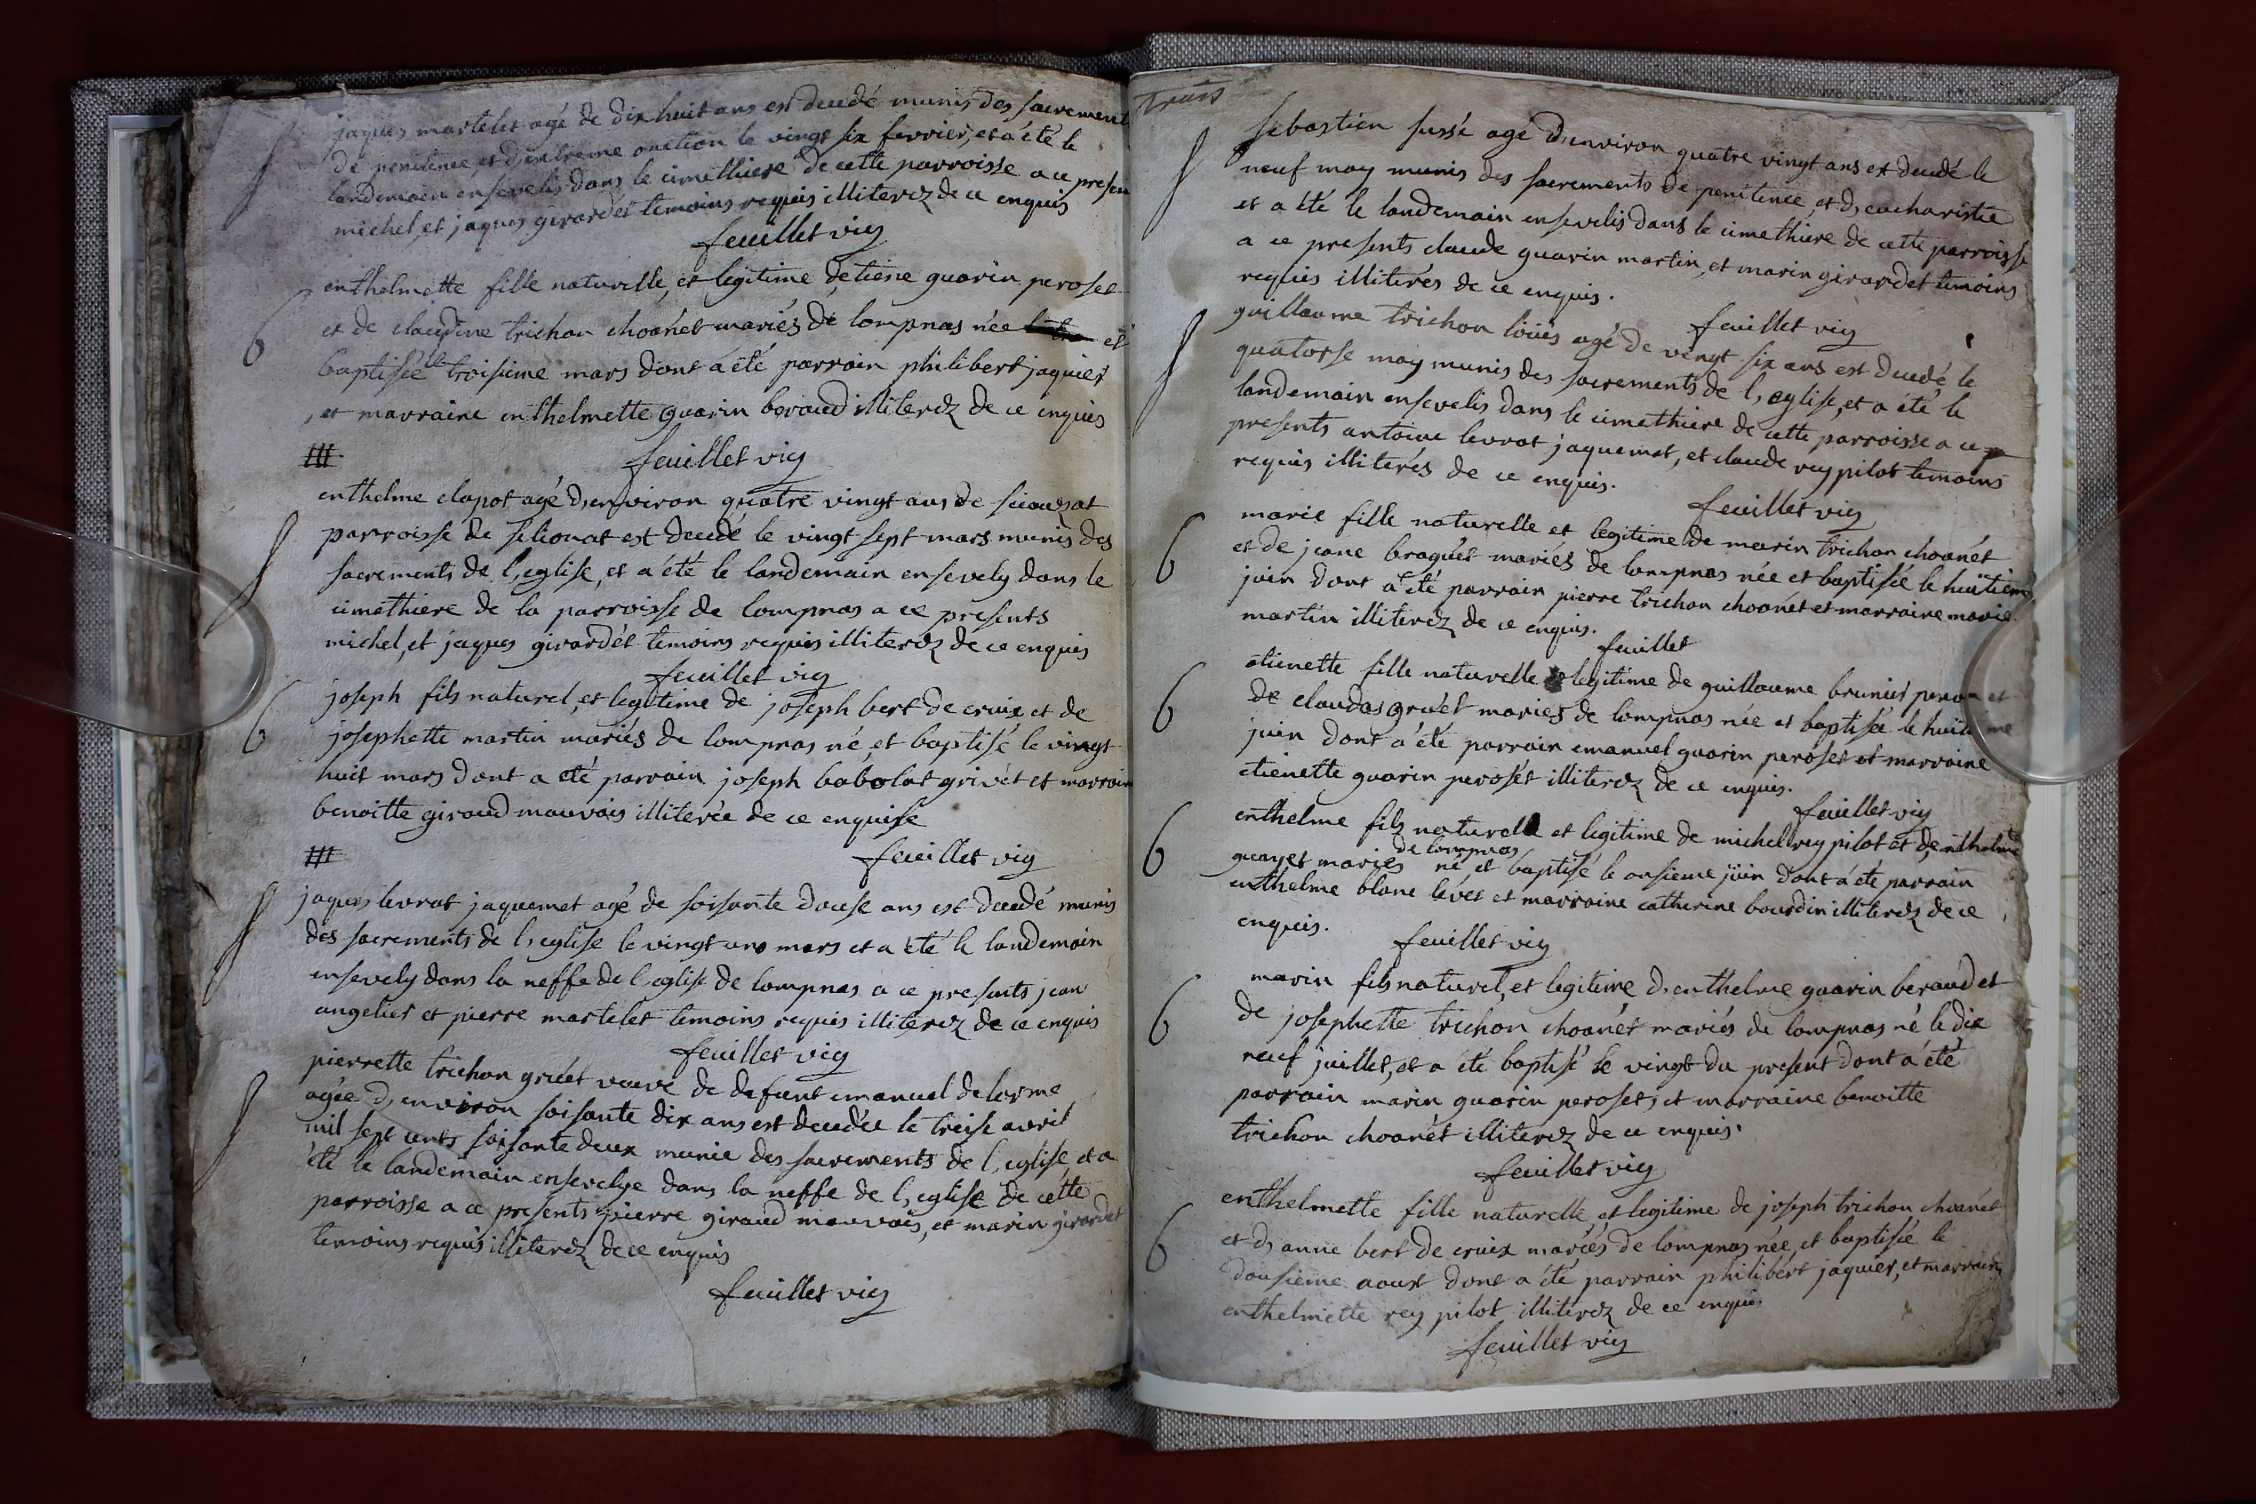 jaques martelet agé de dix huit ans est decedé munis des sacrement
de penitence, et d'extreme onction le vingt six fevrier, et a été le
landemain ensevelis dans le cimethiere de cette parroisse a ce presen
michel, et jaques girardet temoins requis illiterez de ce enquis
feuillet vic
enthelmette fille naturelle, et legitime detiene guarin peroset
et de claudine trichon choanét mariés de lompnas née et
baptisée le troisieme mars dont a été parrain philibert jaquier
et marraine enthelmette guarin beraud illiterez de ce enquis
feuillet vic
enthelme clapot agé d'environ quatre vingt ans de
parroisse de selionat est decedé le vingt sept mars munis des
sacrements de l'eglise, et a été le landemain ensevely dans le
cimethiere de la parroisse de lompnas a ce presents
michel, et jaques girardét temoins requis illiterez de ce enquis
feuillet vic
joseph fils naturel, et legitime de joseph bert de croix et de
josephette martin mariés de lompnas né, et baptisé le vingt
huit mars dont a été parrain joseph babolat grivét et marrain
benoitte giraud mauvais illiterée de ce enquise
feuillet vic
jaques levrat jaquemet agé de soisante douse ans est decedé munis
des sacrements de l'eglise le vingt uno mars et a été le landemain
ensevely dans la neffe de l'eglise de lompnas a ce presents jean
angelier et pierre martelet temoins requis illiterez de ce enquis
feuillet vic
pierrette trichon gruét vueve de defunt emanuel delorme
agée d'environ soisante dix ans est decedée le treise avril
mil sept cents soisante deux munie des sacrements de l'eglise, et a
été le landemain ensevelye dans la neffe de l'eglise de cétte
parroisse a ce presents pierre giraud mauvais, et marin girardet
temoins requis illiterez de ce enquis
feuillet vic
trois
sebastien sussé agé d'environ quatre vingt ans est decedé le
neuf may munis des sacrements de penitence, et d'eucharistie
et a été le landemain ensevelis dans le cimethiere de cette parroisse
a ce presents claude guarin martin, et marin girardet temoins
requis illiterés de ce enquis.
feuillet vic
guillaume trichon loüis agé de vingt six ans est decedé le
quatorse may munis des sacrements de l'eglise, et a été le
landemain ensevelis dans le cimethiere de cette parroisse a ce
presents antoine levrat jaquemet, et claude rey pilot temoins
requis illiterés de ce enquis.
feuillet vic
marie fille naturelle et legitime de marin trichon choanét
et de jeane braguét mariés de lompnas née et baptisée le huitiem
juin dont a été parrain pierre trichon choanét et marraine marie
martin illiterez de ce enquis.
feuillet
etienette fille naturelle legitime de guillaume brunier et
de claudas gruét mariez de lompnas née et baptisée le huit me
juin dont a été parrain emanuel guarin peroset et marraine
etienette guarin perosét illiterez de ce enquis.
feuillet vic
enthelme fils naturel et legitime de michel rey pilot et d'enthelme
guayet mariés de lompnas né, et baptisé le onsieme jüin dont a été parrain
enthelme blanc levét et marraine catherine bourdin illiterez de ce
enquis.
feuillet vic
marin fils naturel, et legitime d'enthelme guarin beraud et
de josephette trichon choanét mariés de lompnas né le dix
neuf juillet, et a été baptisé le vingt du present dont a été
parrain marin guarin peroset, et marraine benoitte
trichon choanét illiterez de ce enquis.
feuillet vic
enthelmette fille naturelle, et legitime de joseph trichon choanét
et d'anne bert de croix mariés de lompnas née, et baptisée le
dousieme aoust dont a été parrain philibert jaquier, et marrain
enthelmette rey pilot illiterez de ce enquis
feuillet vic